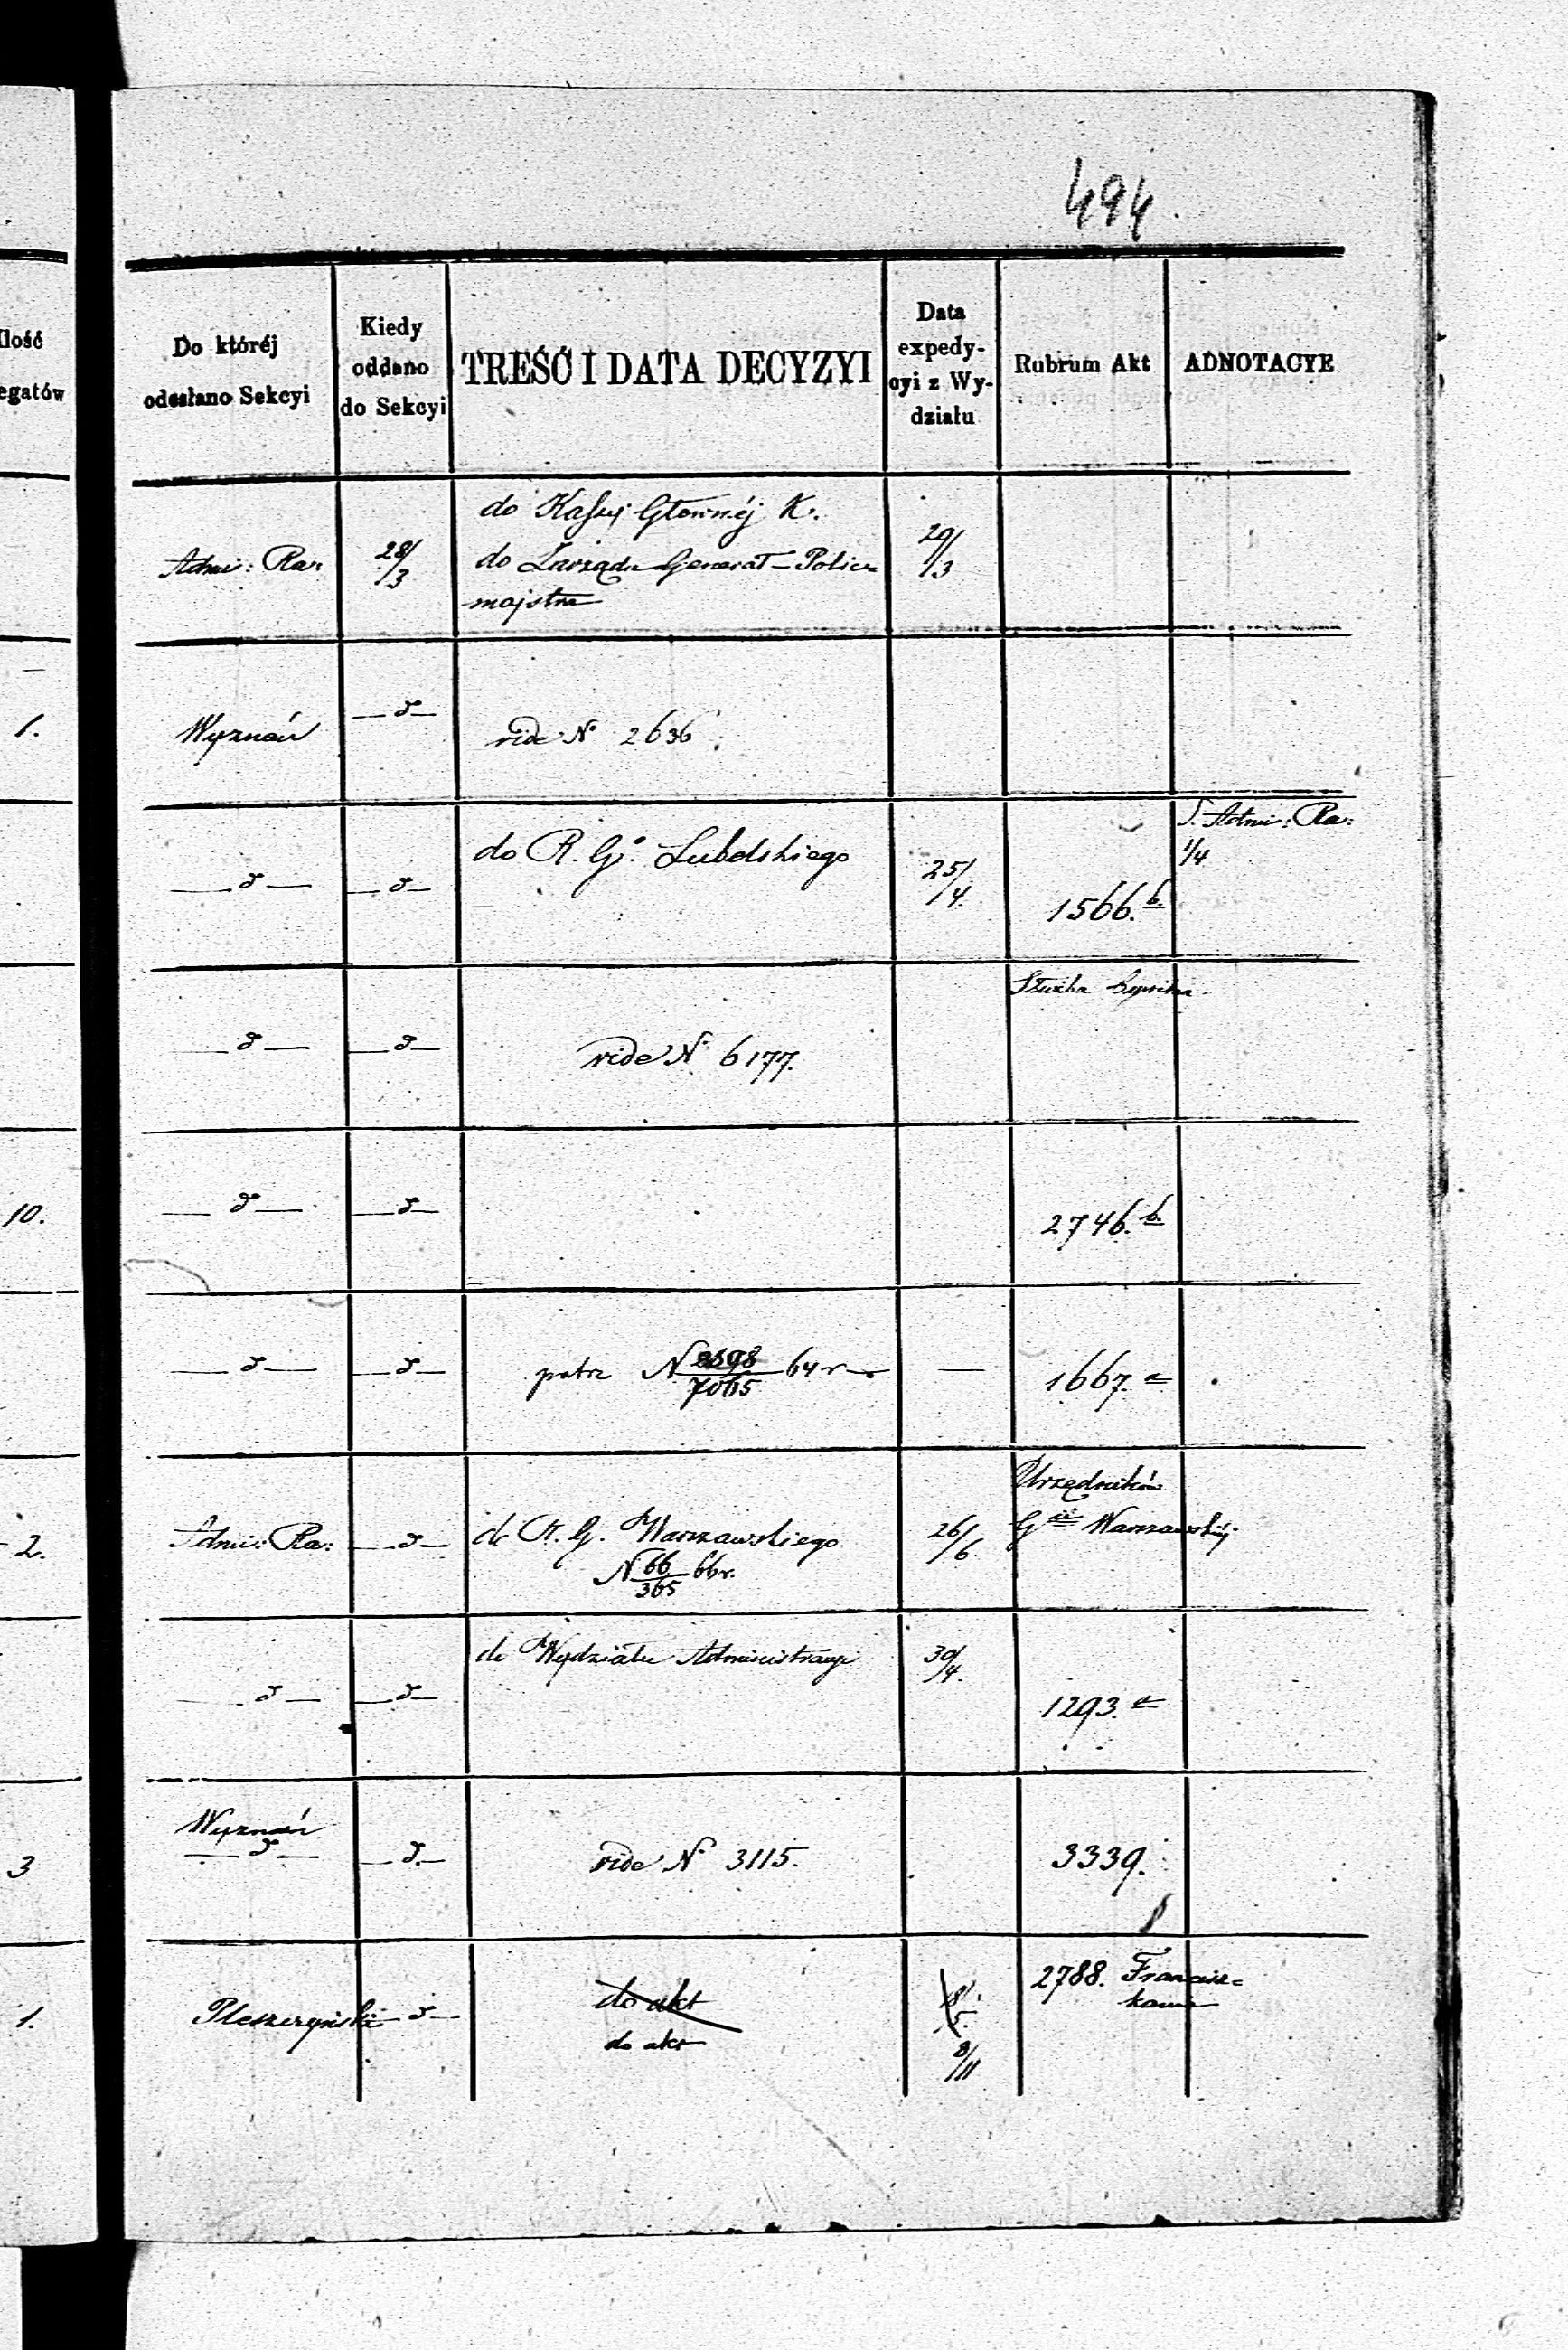 494
Ilość
egatów
Do któréj
odesłano Sekcyi
Kiedy
oddano
do Sekcyi
TREŚĆ I DATA DECYZYI
Data
expedy-
cyi z Wy-
działu
Rubrum Akt
ADNOTACYE
Admi: Ra:
28/3
do Kassy Głównéj K.
do Zarządu Generał-Policm
majstra
29/3
1.
Wyznań
— d —
vide N° 2636.
— d —
— d —
do R. G° Lubelskiego
25/4.
1566. b.
S. Admi: Ra:
1/4
— d —
— d —
vide N° 6177.
Służba
10.
— d —
— d —
2746. b.
— d —
— d —
patrz N 2598/7065 64 r
—
1667. a
2.
Admi: Ra:
— d —
do R. G. Warszawskiego
N 66/365 66r.
26/6.
Urzędników
Gii Warszawskiéj
— d —
— d —
do Wydziału Administracyi
30/4.
1293. a
3
Wyznań
— d —
— d —
vide N° 3115.
3339.
1.
Pleszczyński
— d —
do akt
do akt
8/5.
8/11
2788. Francisz=
kanie